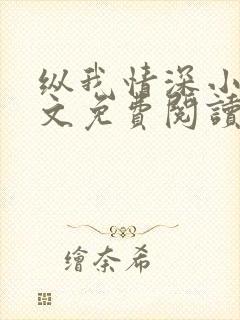 纵我情深小
文免費閱讀
繪奈希